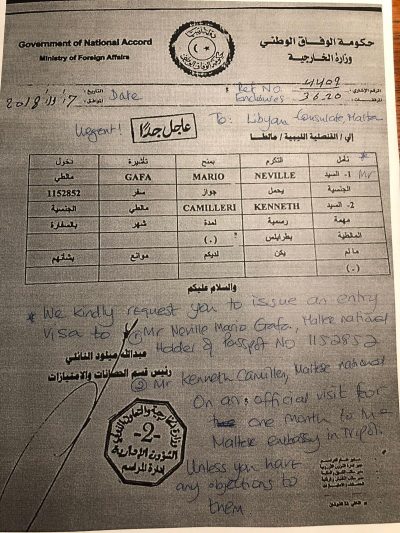 Government of National Accord
Ministry of Foreign Affairs
حكومة الوفاق الوطني
وزارة الخارجية
Date
Ref No. 4409
Enclosures 3620
Urgent!
عاجل جدًا
To: Libyan Consulate, Malta
إلي/ القنصلية الليبية / مالطا
نأمل التكرم بمنح تأشيرة دخول
Mr
1- السيد NEVILLE MARIO GAFA مالطي
الجنسية يحمل جواز سفر 1152852
2- السيد KENNETH CAMILLERI مالطي الجنسية
مهمة رسمية لمدة شهر بالسفارة
المالطية بطرابلس (.)
مالم يكن لديكم موانع بشأنهم
(.)
والسلام عليكم
* We kindly request you to issue an entry
visa to ① Mr Neville Mario Gafa, Maltese national
Holder of Passport No 1152852
عبدالله ميلود النائلي
رئيس قسم الحصانات والامتيازات
② Mr Kenneth Camilleri, Maltese national
On an official visit for
one month to the
Maltese embassy in Tripoli.
Unless you have
any objections to
them
-2-
الشؤون الإدارية
إدارة المراسم